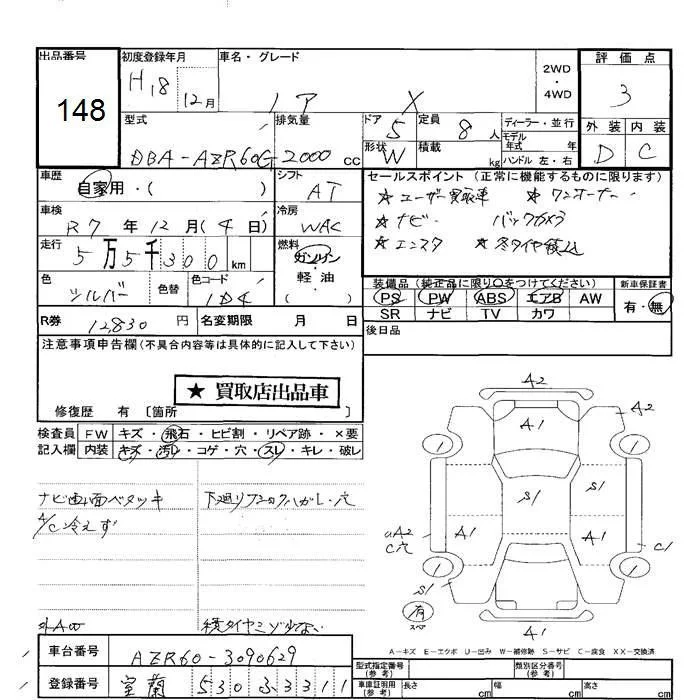 出品番号 初度登録年月 車名・グレード 評価点
148
H18 12月
ノア X
2WD・4WD
3
型式 排気量 ドア 定員 ディーラー・並行 外装 内装
DBA-AZR60G 2000 cc 5 8人 モデル年式 年
形状 W 積載 kg ハンドル 左・右 D C
車歴 シフト セールスポイント (正常に機能するものに限ります)
自家用・( ) AT ★ユーザー買取車 ★ワンオーナー
車検 冷房
R7年12月(4日) WAC ★ナビ バックカメラ
走行 燃料
5万5千300km ガソリン 軽・油 ★エンスタ ★冬タイヤ積込
色 色替 色コード 装備品 (純正品に限り○をつけてください) 新車保証書
シルバー 1D4 PS PW ABS エアB AW 有・無
SR ナビ TV カワ
R券 12,830円 名変期限 月 日 後日品
注意事項申告欄(不具合内容等は具体的に記入して下さい)
★ 買取店出品車
修復歴 有 〔箇所
検査員 FW キズ・飛石・ヒビ割・リペア跡・×要
記入欄 内装 キズ・汚レ・コゲ・穴・スレ・キレ・破レ
ナビ画面ベタツキ 下廻りフックハガレ・穴
A/C冷えず
外A00 積タイヤミゾ少ない
A2
A1 A2
1 1
S1 S1
uA2 C穴 A1 A1 C1
1 1
S1
有 スペア A1
A1
A-キズ E-エクボ U-凹み W-補修跡 S-サビ C-腐食 XX-交換済
車台番号 AZR60-3090629
型式指定番号(参考) 類別区分番号(参考)
登録番号 室蘭 530 ふ 3311
車庫証明用(参考) 長さ cm 幅 cm 高さ cm